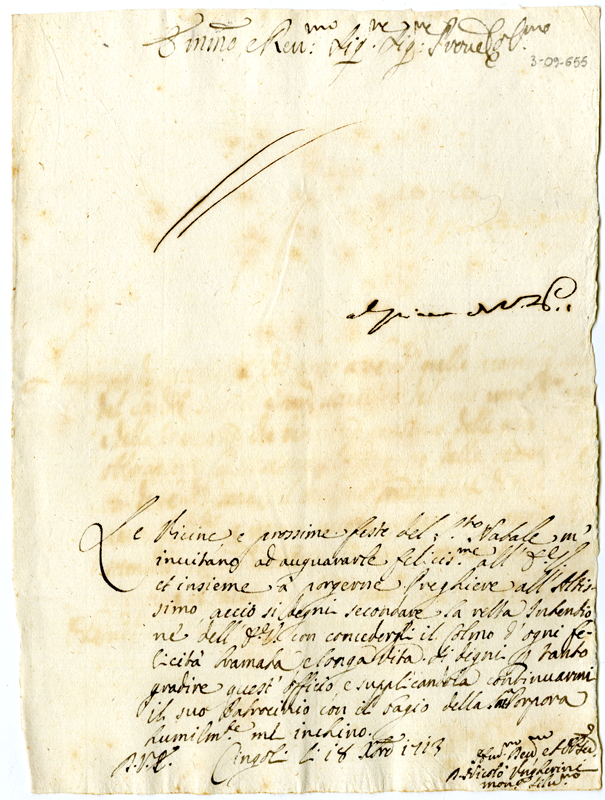 Emin̄o e Reu:mo Sig.re Sig:re P̄rone Col.mo
3-09-655
Le Vicine e prossime feste del S.to Natale m'
inuitano ad auguararle felicis.me all' E.V.
et insieme à porgerne Preghiere all' Altis-
simo, acciò si degni secondare la retta Intentio
ne dell' E.V. con concederli il colmo d'ogni fe-
licità bramata, e longa vita. Si degni in tanto
gradire quest' officio, e supplicandola continuarmi
il suo Patrocinio con il bagio della Porpora
humilm.te mi inchino.
Cingoli li 18 Xbre 1713
D. Nicolò Ungherini